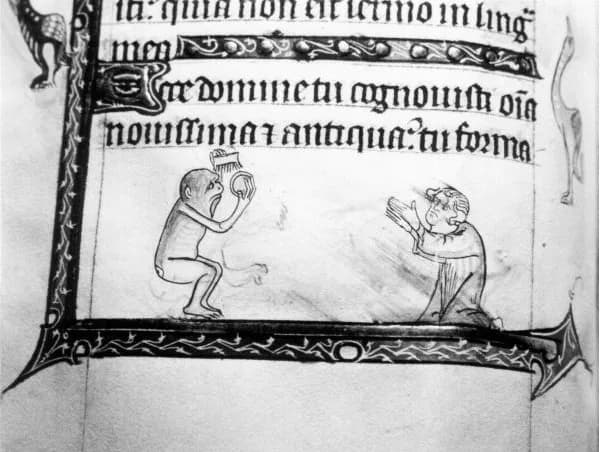 iti: quia non est sermo in ling̃
mea
Ecce domine tu cognouisti oĩa
nouissima ⁊ antiqua: tu forma